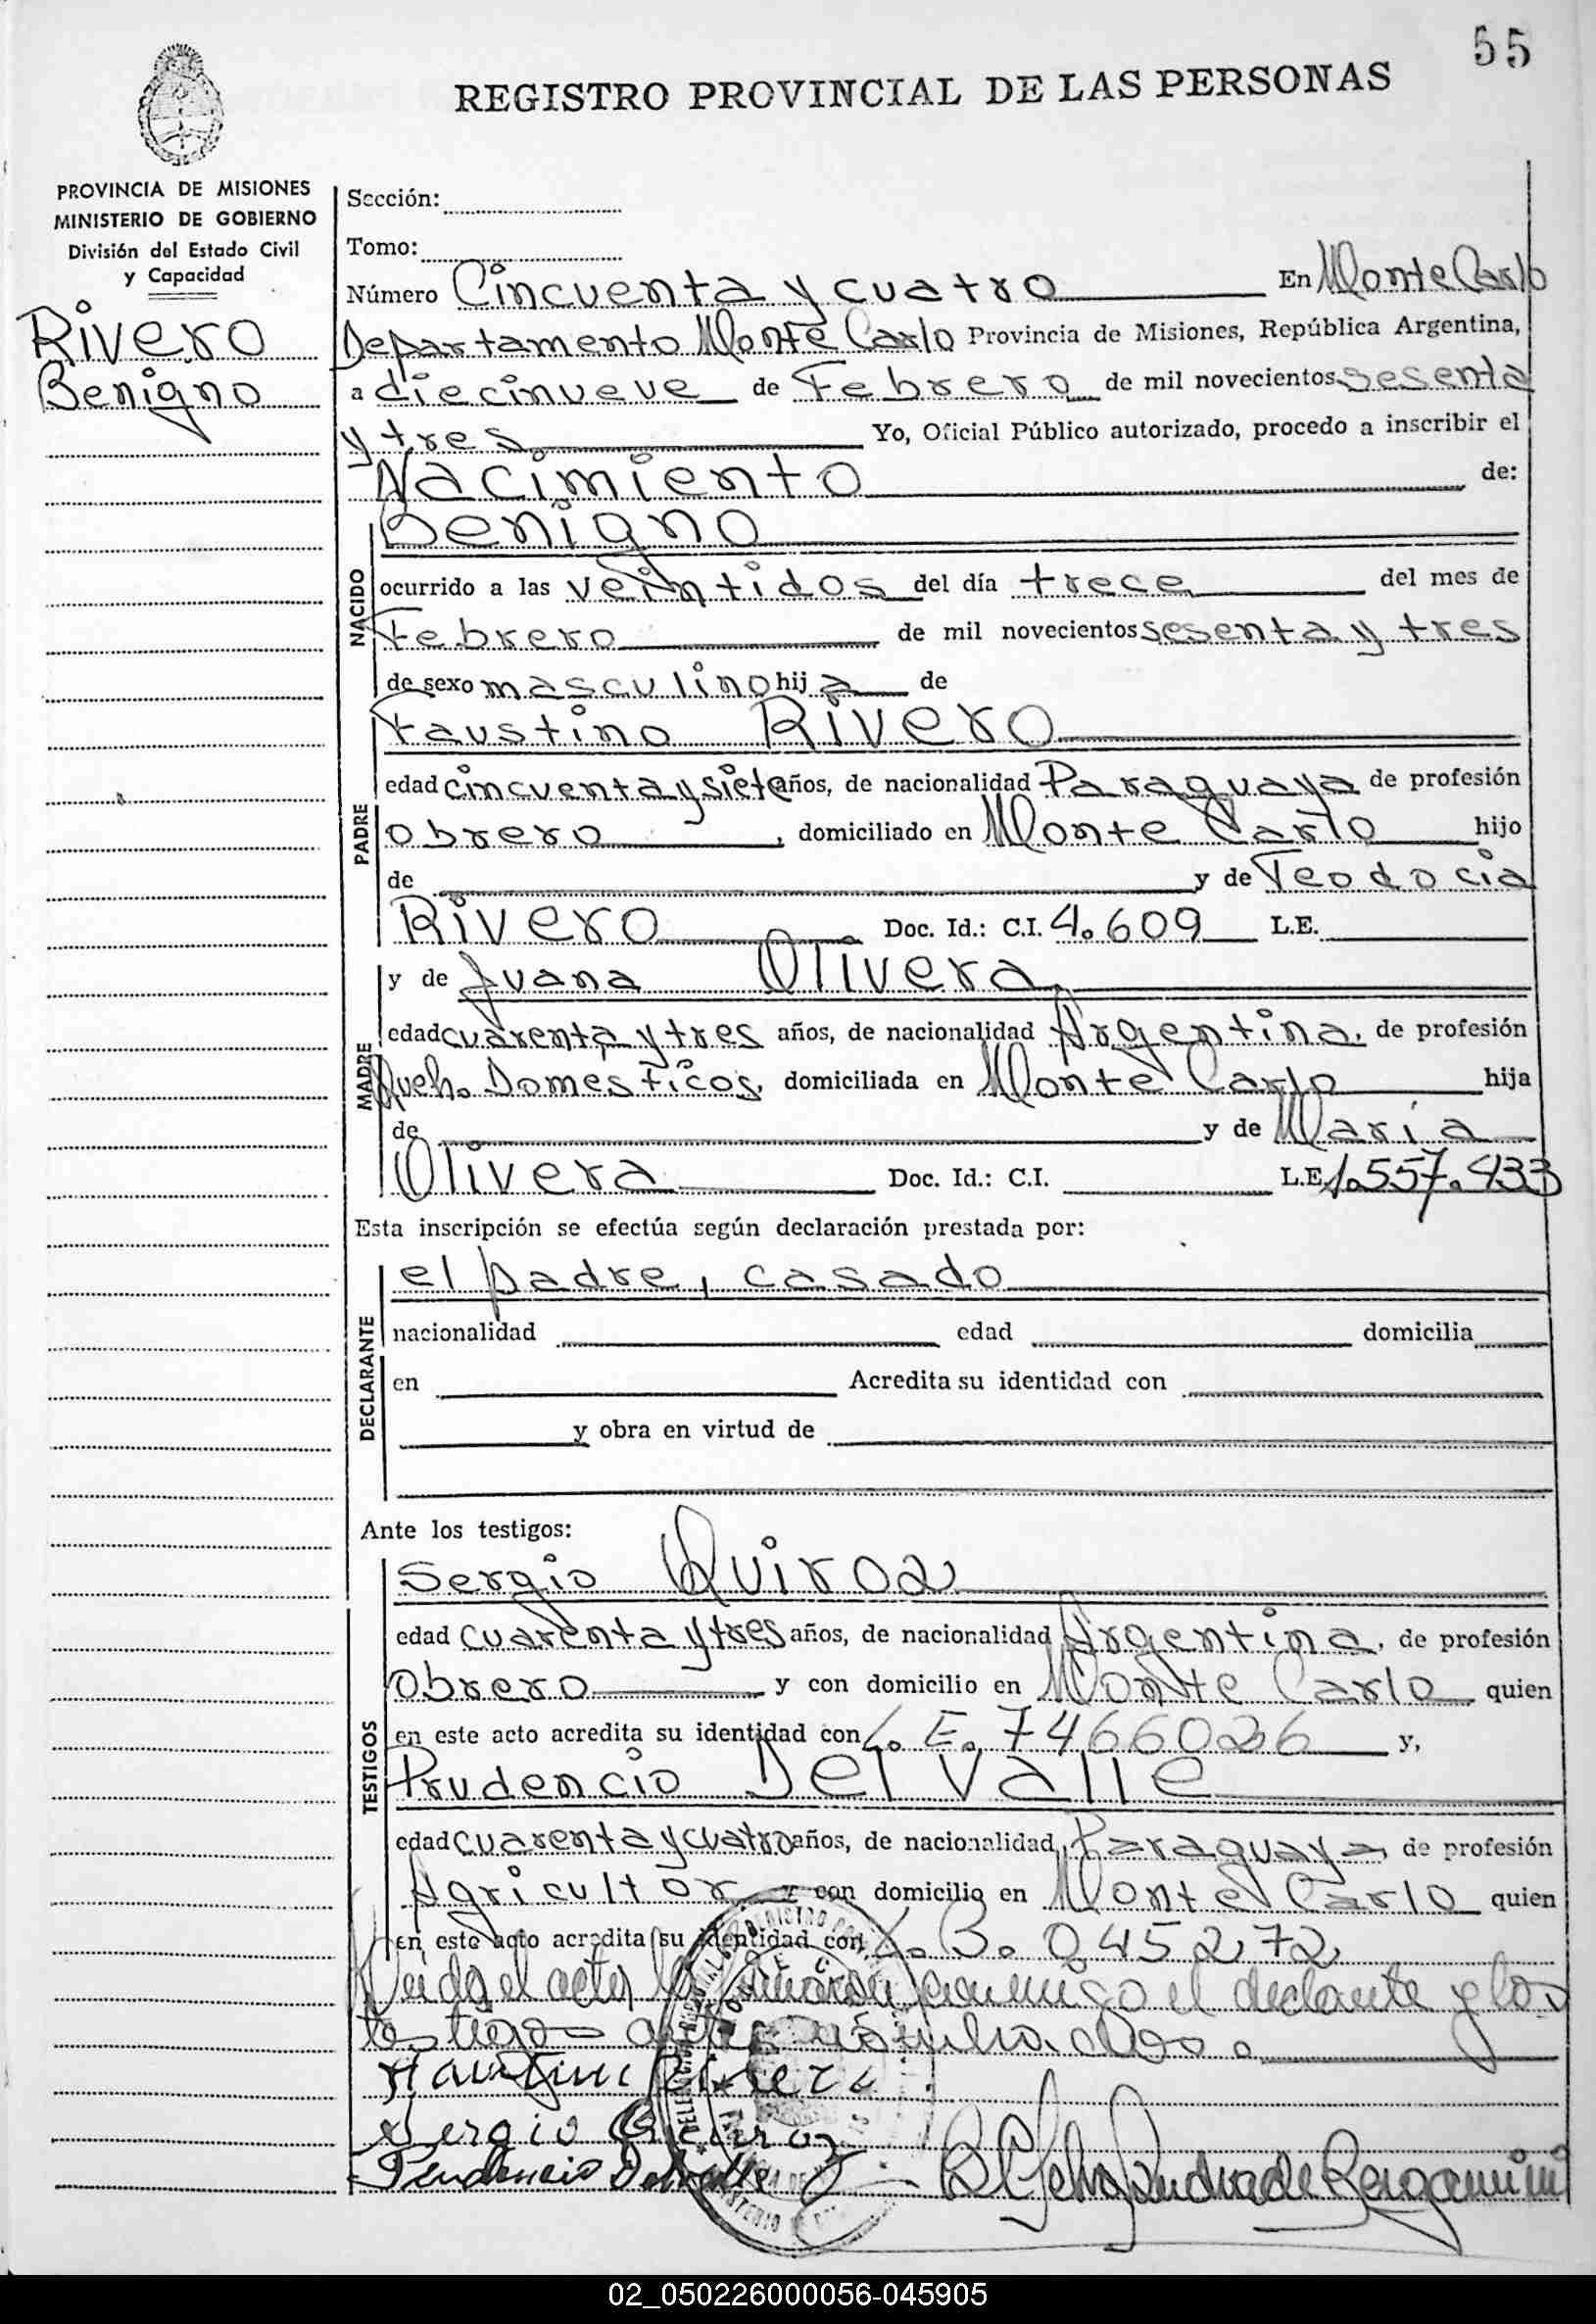 55
REGISTRO PROVINCIAL DE LAS PERSONAS
PROVINCIA DE MISIONES
MINISTERIO DE GOBIERNO
División del Estado Civil
y Capacidad
Rivero
Benigno
Sección:
Tomo:
Número Cincuenta y cuatro En Monte Carlo
Departamento Monte Carlo Provincia de Misiones, República Argentina,
a diecinueve de Febrero de mil novecientos sesenta
y tres Yo, Oficial Público autorizado, procedo a inscribir el
Nacimiento de:
NACIDO
Benigno
ocurrido a las veintidos del día trece del mes de
Febrero de mil novecientos sesenta y tres
de sexo masculino hij a de
PADRE
Faustino Rivero
edad cincuenta y siete años, de nacionalidad Paraguaya de profesión
obrero, domiciliado en Monte Carlo hijo
de y de Teodocia
Rivero Doc. Id.: C.I. 4.609 L.E.
MADRE
y de Juana Olivera
edad cuarenta y tres años, de nacionalidad Argentina, de profesión
Queh. Domesticos, domiciliada en Monte Carlo hija
de y de María
Olivera Doc. Id.: C.I. L.E. 1.557.433
Esta inscripción se efectúa según declaración prestada por:
DECLARANTE
el padre, casado
nacionalidad edad domicilia
en Acredita su identidad con
y obra en virtud de
Ante los testigos:
TESTIGOS
Sergio Quiroz
edad cuarenta y tres años, de nacionalidad Argentina, de profesión
obrero y con domicilio en Monte Carlo quien
en este acto acredita su identidad con L. E. 7466026 y,
Prudencio Del Valle
edad cuarenta y cuatro años, de nacionalidad Paraguaya de profesión
Agricultor y con domicilio en Monte Carlo quien
en este acto acredita su identidad con L. B. 045272
Leida el acta, la firmaron conmigo el declante y los
testigos
Faustino Rivero
Sergio Quiroz
Prudencio Delvalle
de Bergamini
02_050226000056-045905